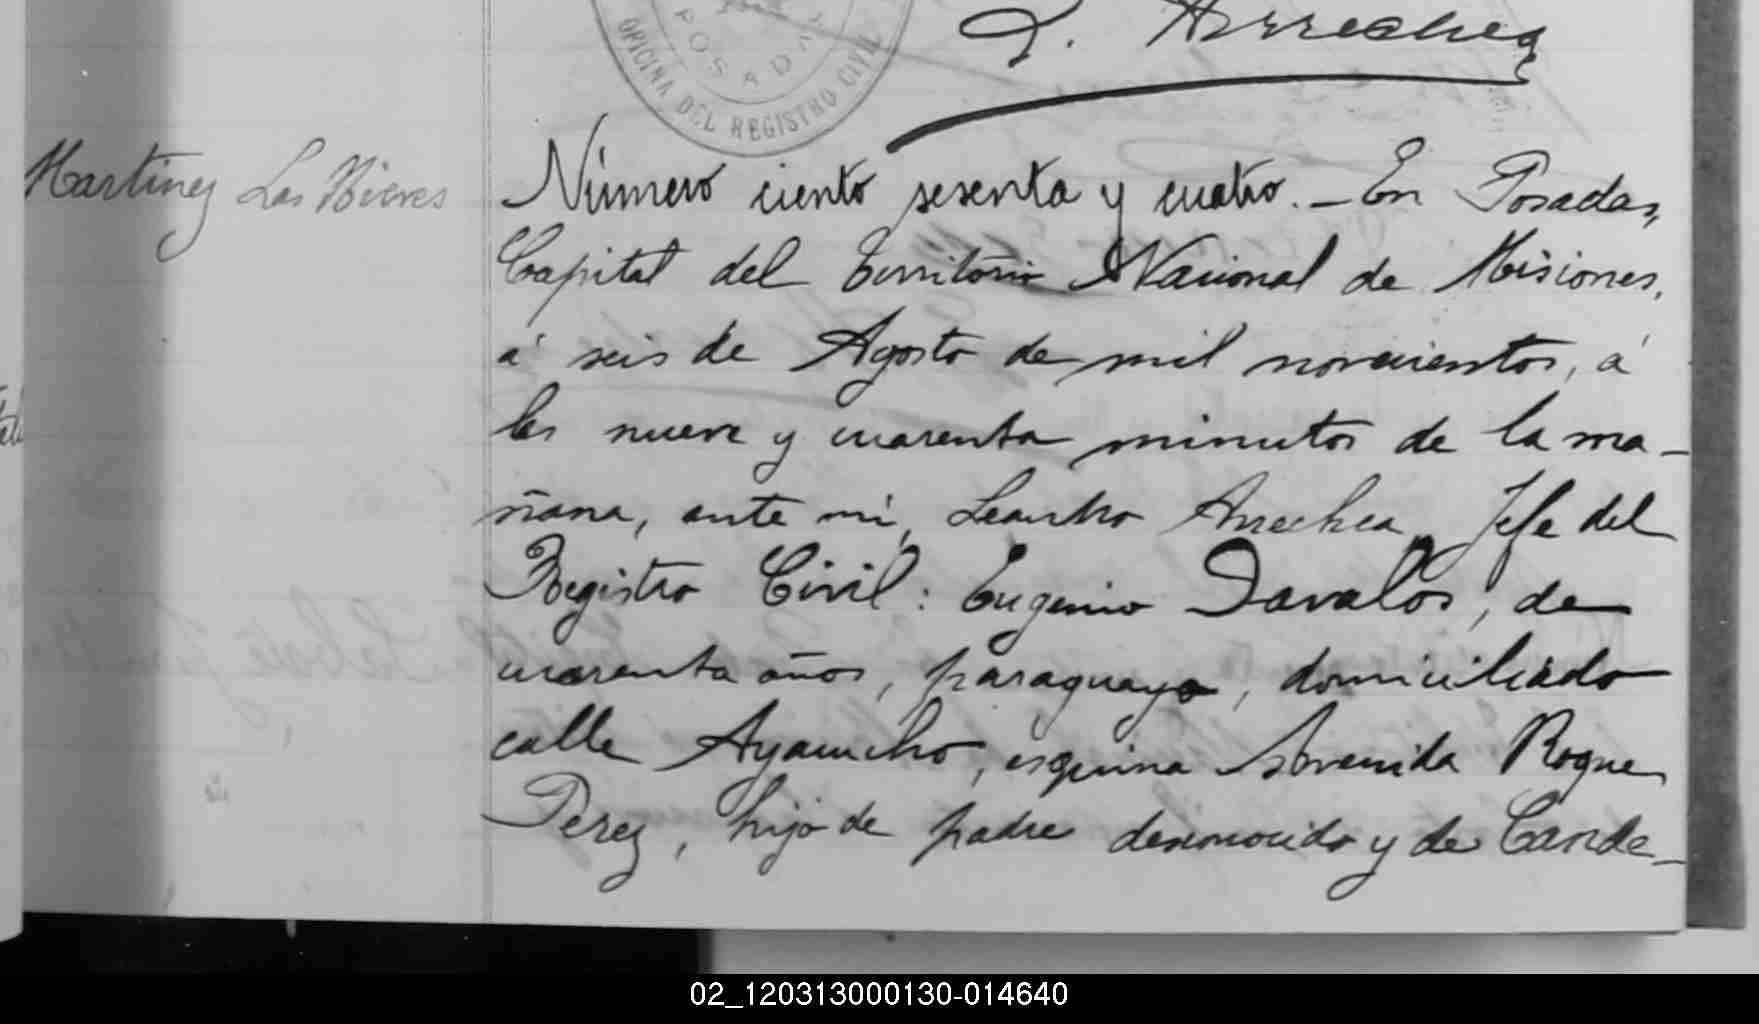 POSADAS
OFICINA DEL REGISTRO CIVIL
L. Arrechea
Martinez Las Nieves
Número ciento sesenta y cuatro. - En Posadas,
Capital del Territorio Nacional de Misiones,
á seis de Agosto de mil novecientos, á
las nueve y cuarenta minutos de la ma-
ñana, ante mi, Leandro Arrechea, Jefe del
Registro Civil: Eugenio Davalos, de
cuarenta años, paraguayo, domiciliado
calle Ayacucho, esquina Avenida Roque
Perez, hijo de padre desconocido y de Cande-
02_120313000130-014640